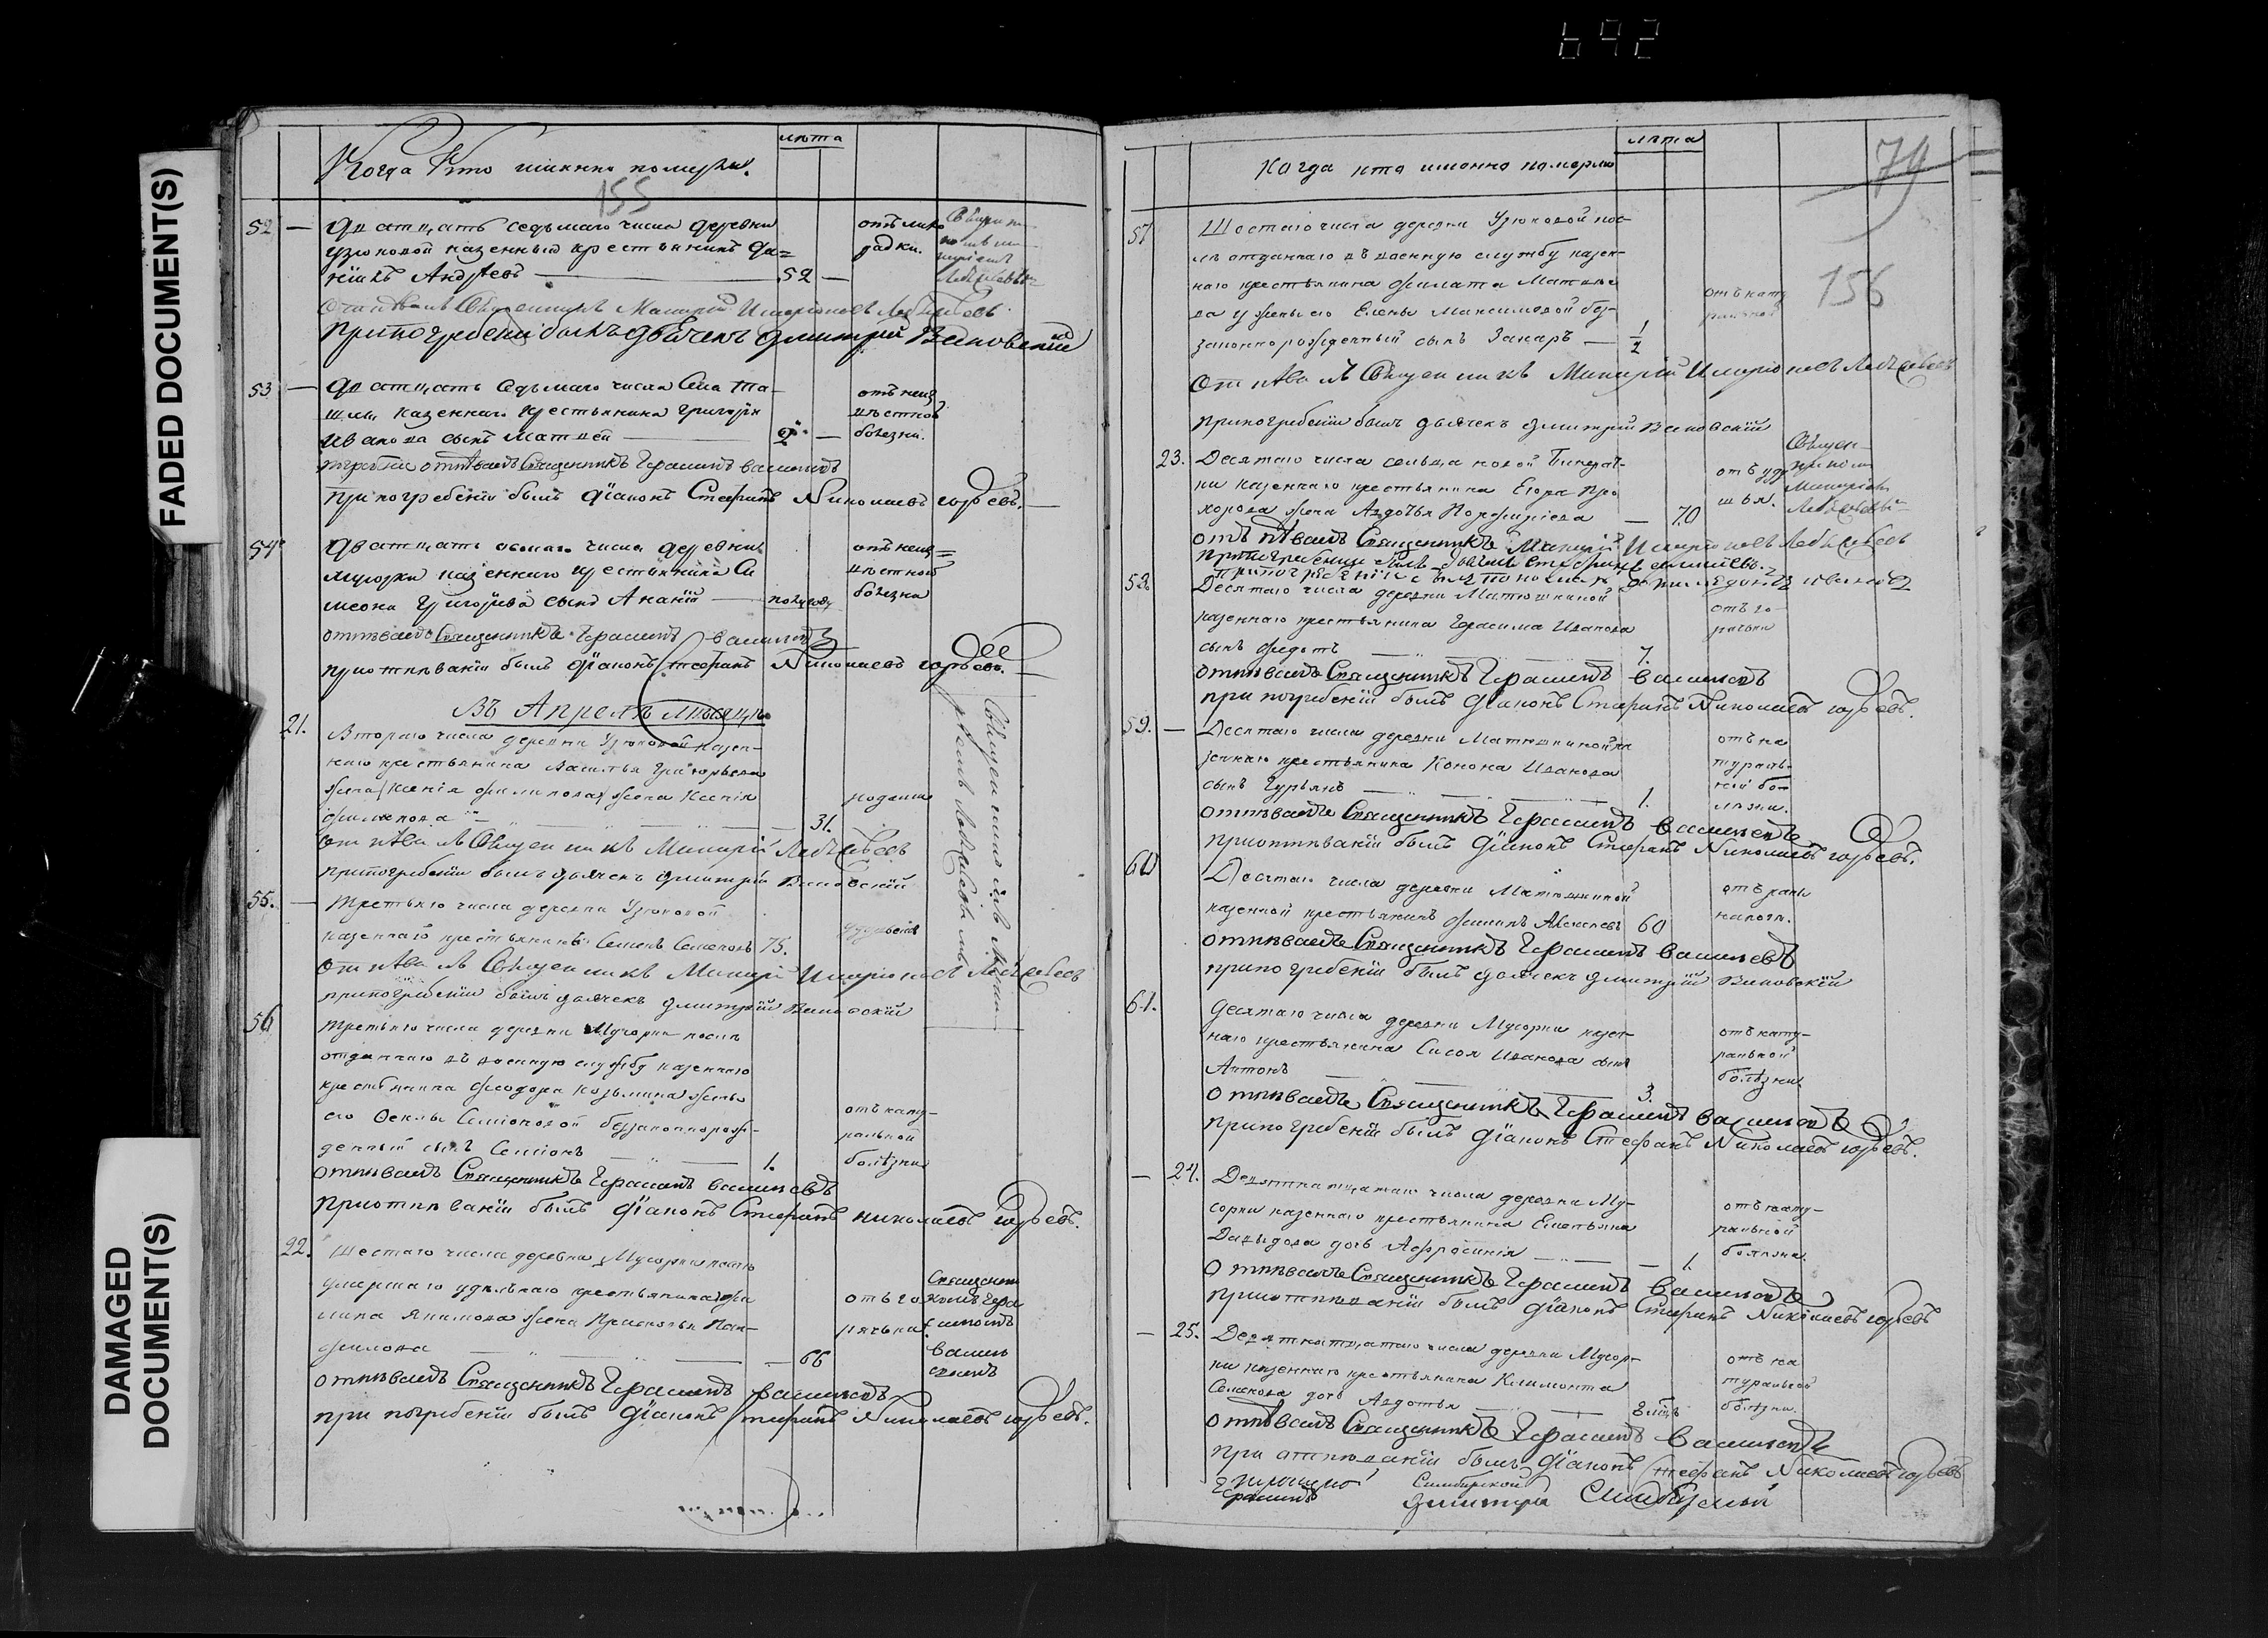 692
FADED DOCUMENT(S)
DAMAGED
DOCUMENT(S)
Когда Кто именно померли.
лѣта
155
52 — Дватцать седьмаго числа деревни
узюковой казенный крестьянинъ Да=
нiилъ Андреевъ — 52 —
отъ лихо
радки.
Отпѣвалъ Священникъ Макарiй Иларiоновъ Лебедевъ
при погребенiи былъ дьячекъ Дмитрiй Виновскiй
53 — Дватцать седьмаго числа Села Та-
шлы казеннаго крестьянина Григорья
Иванова сынъ Матвей —
отъ неиз
вѣстной
болезни.
отпѣвалъ Священникъ Герасимъ Васильевъ
при погребенiи былъ дiаконъ Стефанъ Николаевъ Юрьевъ.
54 Дватцать осьмаго числа деревни
Мусорки казеннаго крестьянина Си
меона Григорьева сынъ Ананiй — полугоду
отъ неиз=
вѣстной
болезни
отпѣвалъ Священникъ Герасимъ Васильевъ
при отпѣванiи былъ дiаконъ Стефанъ Николаевъ Юрьевъ.
Въ Апрелѣ мѣсяцѣ
21. Втораго числа деревни Узюковой казен-
наго крестьянина Василья Григорьева
жена Ксенiя Филипова жена Ксенiя
Филипова — 31.
родами
отпѣвалъ Священникъ Макарiй Лебедевъ
при погребенiи былъ дьячекъ Дмитрiй Виновскiй
55. — Третьяго числа деревни Узюковой
казеннаго крестьянинъ Семенъ Семеновъ 75.
отпѣвалъ Священникъ Макарiй Иларiоновъ Лебедевъ
при погребенiи былъ дьячекъ Дмитрiй Виновскiй
56 Третьяго числа деревни Мусорки послѣ
отданнаго въ военную службу казеннаго
крестьянина Феодора Козьмина жены
его Феклы Семiоновой беззаконнорож-
денный сынъ Семiонъ — 1.
отъ нату-
ральной
болѣзни
отпѣвалъ Священникъ Герасимъ Васильевъ
при отпѣванiи былъ дiаконъ Стефанъ Николаевъ Юрьевъ.
22. Шестаго числа деревни Мусорки послѣ
умершаго удѣльнаго крестьянина Фи
липа Якимова жена Прасковья Пан-
филова — 66
отъ го
рячьки
Священни
комъ Гера
симомъ
Василь
евымъ
отпѣвалъ Священникъ Герасимъ Васильевъ
при погребенiи былъ дiаконъ Стефанъ Николаевъ Юрьевъ.
Когда кто именно померли
лѣта
79
156
57 Шестаго числа деревни Узюковой пос-
лѣ отданнаго въ военную службу казен-
наго крестьянина Филата Матвее
ва у жены его Елены Максимовой без-
законнорожденный сынъ Захаръ — 1/2
отъ нату
ральной
Отпѣвалъ Священникъ Макарiй Иларiоновъ Лебедевъ
при погребенiи былъ дьячекъ Дмитрiй Виновскiй
23. Десятаго числа сельца новой Бинарат-
ки казеннаго крестьянина Егора Про
хорова жена Авдотья Порфирiева — 70
отъ уду
шья.
отпѣвалъ Священникъ Макарiй Иларiоновъ Лебедевъ
58. Десятаго числа деревни Матюшкиной
казеннаго крестьянина Герасима Иванова
сынъ Федотъ — 7.
отъ го-
рячьки
отпѣвалъ Священникъ Герасимъ Васильевъ
при погребенiи былъ дiаконъ Стефанъ Николаевъ Юрьевъ.
59. — Десятаго числа деревни Матюшкиной ка
зеннаго крестьянина Конона Иванова
сынъ Гурьянъ — 1.
отъ на
тураль-
ной бо-
лѣзни.
отпѣвалъ Священникъ Герасимъ Васильевъ
при отпѣванiи былъ дiаконъ Стефанъ Николаевъ Юрьевъ.
60 Десятаго числа деревни Матюшкиной
казенной крестьянинъ Филипъ Алексеевъ 60
отпѣвалъ Священникъ Герасимъ Васильевъ
при погребенiи былъ дьячекъ Дмитрiй Виновскiй
61. Десятаго числа деревни Мусорки казен-
наго крестьянина Сысоя Иванова сынъ
Антонъ — 3.
отъ нату-
ральной
болѣзни
отпѣвалъ Священникъ Герасимъ Васильевъ
при погребенiи былъ дiаконъ Стефанъ Николаевъ Юрьевъ.
— 24. Девятнатцатаго числа деревни Му-
сорки казеннаго крестьянина Емельяна
Давыдова дочь Афросинiя — 1.
отъ нату-
ральной
болѣзни
отпѣвалъ Священникъ Герасимъ Васильевъ
при отпѣванiи былъ дiаконъ Стефанъ Николаевъ Юрьевъ
— 25. Девятнатцатаго числа деревни Мусор-
ки казеннаго крестьянина Климонта
Семенова дочь Авдотья —
отъ на
туральной
болѣзни.
отпѣвалъ Священникъ Герасимъ Васильевъ
при отпѣванiи былъ дiаконъ Стефанъ Николаевъ Юрьевъ